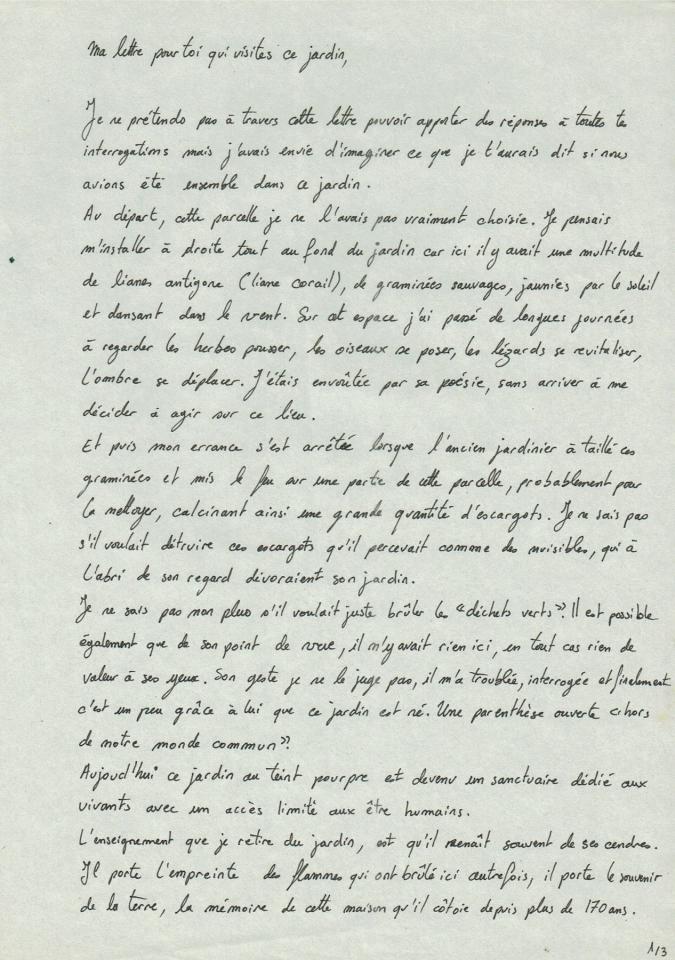 Ma lettre pour toi qui visites ce jardin,
Je ne prétends pas à travers cette lettre pouvoir apporter des réponses à toutes tes
interrogations mais j'avais envie d'imaginer ce que je t'aurais dit si nous
avions été ensemble dans ce jardin.
Au départ, cette parcelle je ne l'avais pas vraiment choisie. Je pensais
m'installer à droite tout au fond du jardin car ici il y avait une multitude
de lianes antigone (liane corail), de graminées sauvages, jaunies par le soleil
et dansant dans le vent. Sur cet espace j'ai passé de longues journées
à regarder les herbes pousser, les oiseaux se poser, les lézards se revitaliser,
l'ombre se déplacer. J'étais envoûtée par sa poésie, sans arriver à me
décider à agir sur ce lieu.
Et puis mon errance s'est arrêtée lorsque l'ancien jardinier à taillé ces
graminées et mis le feu sur une partie de cette parcelle, probablement pour
la nettoyer, calcinant ainsi une grande quantité d'escargots. Je ne sais pas
s'il voulait détruire ces escargots qu'il percevait comme des nuisibles, qui à
l'abri de son regard dévoraient son jardin.
Je ne sais pas non plus s'il voulait juste brûler les "déchets verts". Il est possible
également que de son point de vue, il n'y avait rien ici, en tout cas rien de
valeur à ses yeux. Son geste je ne le juge pas, il m'a troublée, interrogée et finalement
c'est un peu grâce à lui que ce jardin est né. Une parenthèse ouverte "hors
de notre monde commun".
Aujoud'hui ce jardin au teint pourpre est devenu un sanctuaire dédié aux
vivants avec un accès limité aux être humains.
L'enseignement que je retire du jardin, est qu'il renaît souvent de ses cendres.
Il porte l'empreinte des flammes qui ont brûlé ici autrefois, il porte le souvenir
de la terre, la mémoire de cette maison qu'il côtoie depuis plus de 170 ans.
1/3